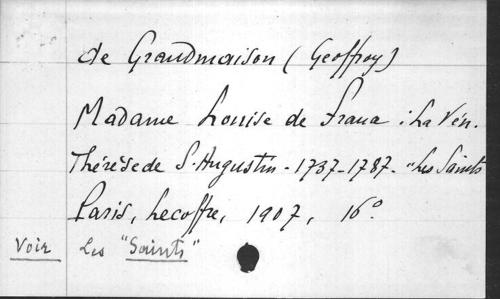 de Grandmaison (Geoffroy)
Madame Louise de France : La Vén.
Thérèse de S. Augustin - 1737-1787 - "Les Saints
Paris, Lecoffre, 1907, 16°
Voir Les "Saints"